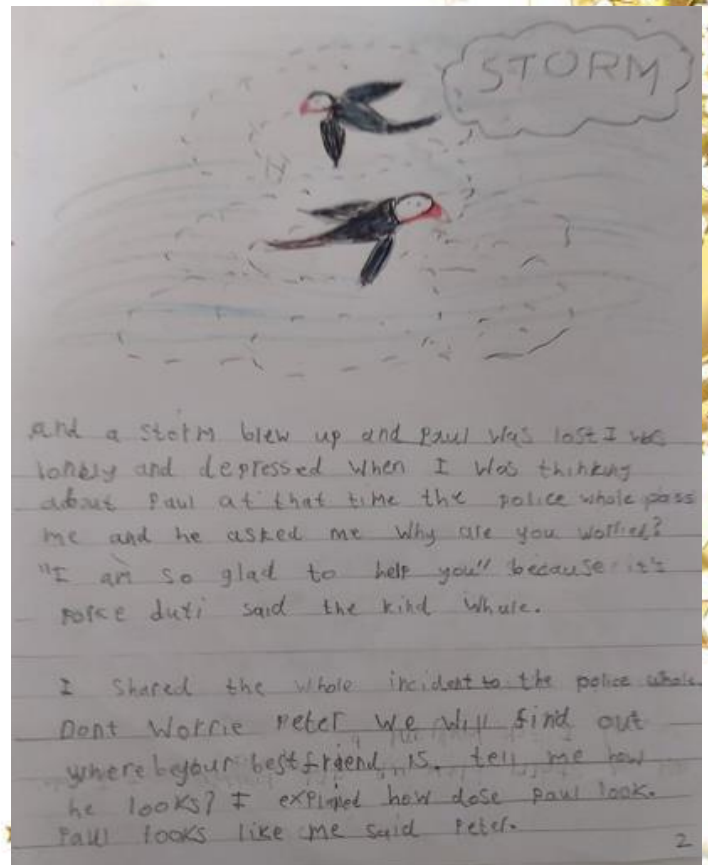 STORM
and a storm blew up and Paul was lost I was
lonely and depressed when I was thinking
about Paul at that time the police whole pass
me and he asked me why are you worried?
"I am so glad to help you" because it's
duti said the kind whale.
I shared the whole incident to the police whale
Dont Worrie Peter we will find out
where be your best friend is. tell me how
he looks? I how dose Paul look.
Paul looks like me said Peter.
2